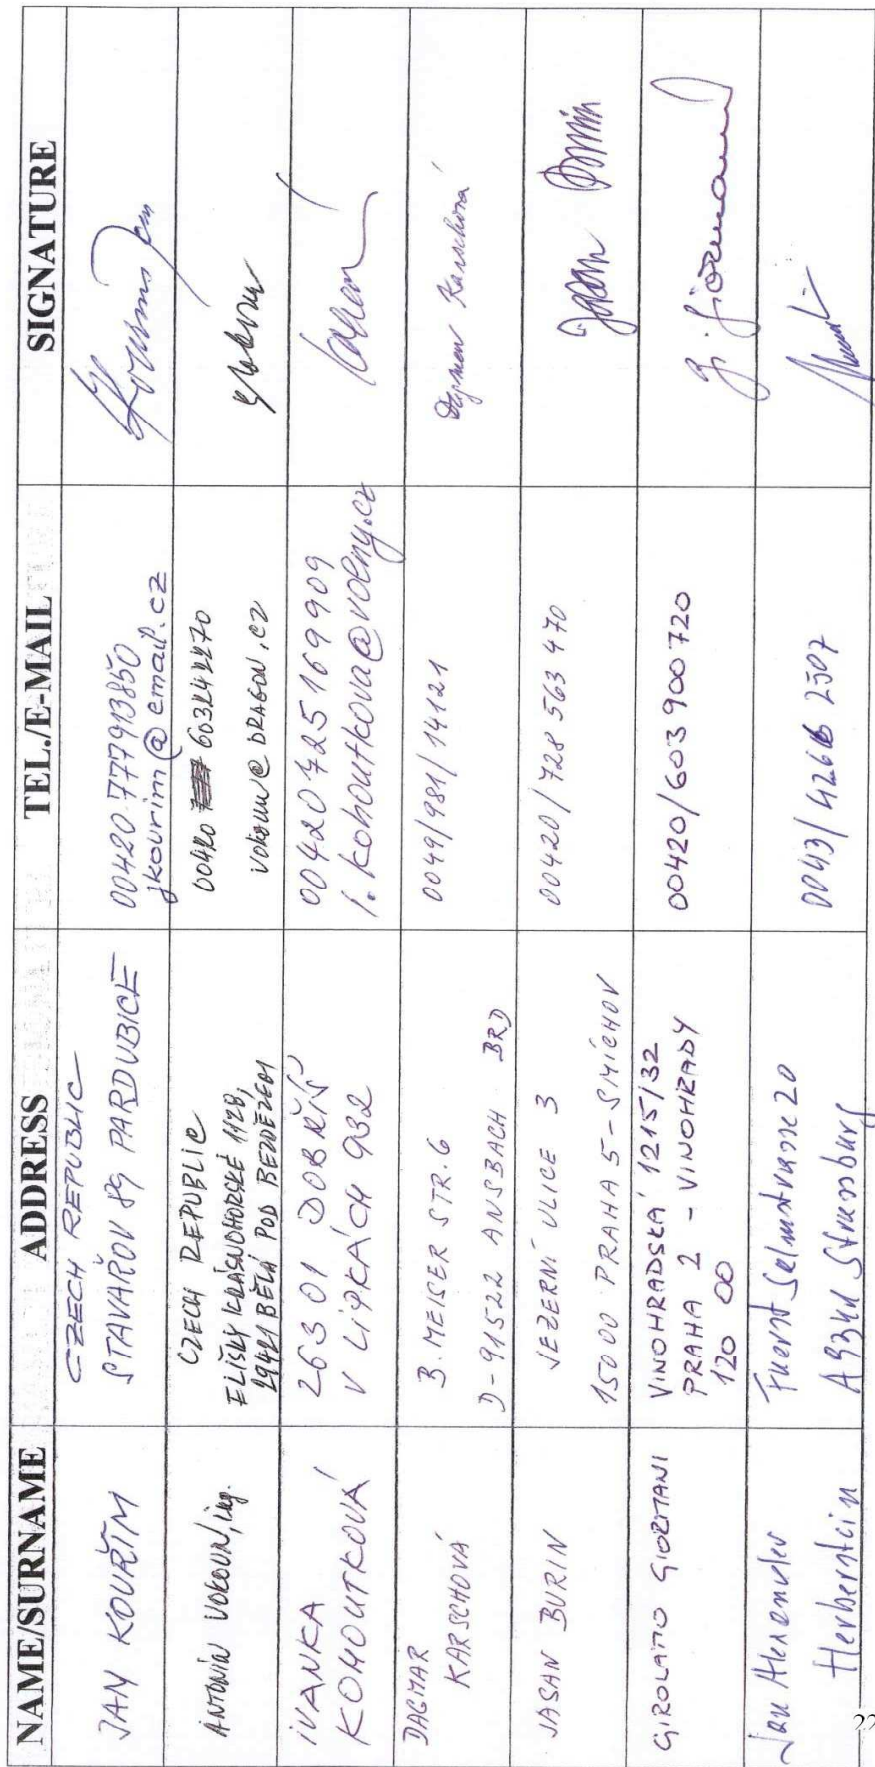 NAME/SURNAME ADDRESS TEL./E-MAIL SIGNATURE
JAN KOUŘIM
CZECH REPUBLIC
STAVAŘOV 89 PARDUBICE
00420 777913850
jkourim@email.cz
ANTONÍN VOKOUN, ing.
CZECH REPUBLIC
ELIŠKY KRÁSNOHORSKÉ 1128,
29421 BĚLÁ POD BEZDĚZEM
00420 603242270
vokoun@DRAGON.CZ
IVANKA
KOHOUTKOVÁ
26301 DOBŘÍŠ
V LIPKÁCH 932
00420725169909
i.kohoutkova@volny.cz
DAGMAR
KARSCHOVÁ
B. MEISER STR. 6
D-91522 ANSBACH BRD
0049/981/14121
Dagmar Karschová
JASAN BURIN
JEZERNÍ ULICE 3
15000 PRAHA 5-SMÍCHOV
00420/728 563 470
Jasan Burin
GIROLAMO GIORMANI
VINOHRADSKÁ 1215/32
PRAHA 2 - VINOHRADY
120 00
00420/603 900 720
G. Giormani
Jan Alexander
Herberstein
Fuerst Salmstrasse 20
A9341 Strassburg
0043/4266 2507
22